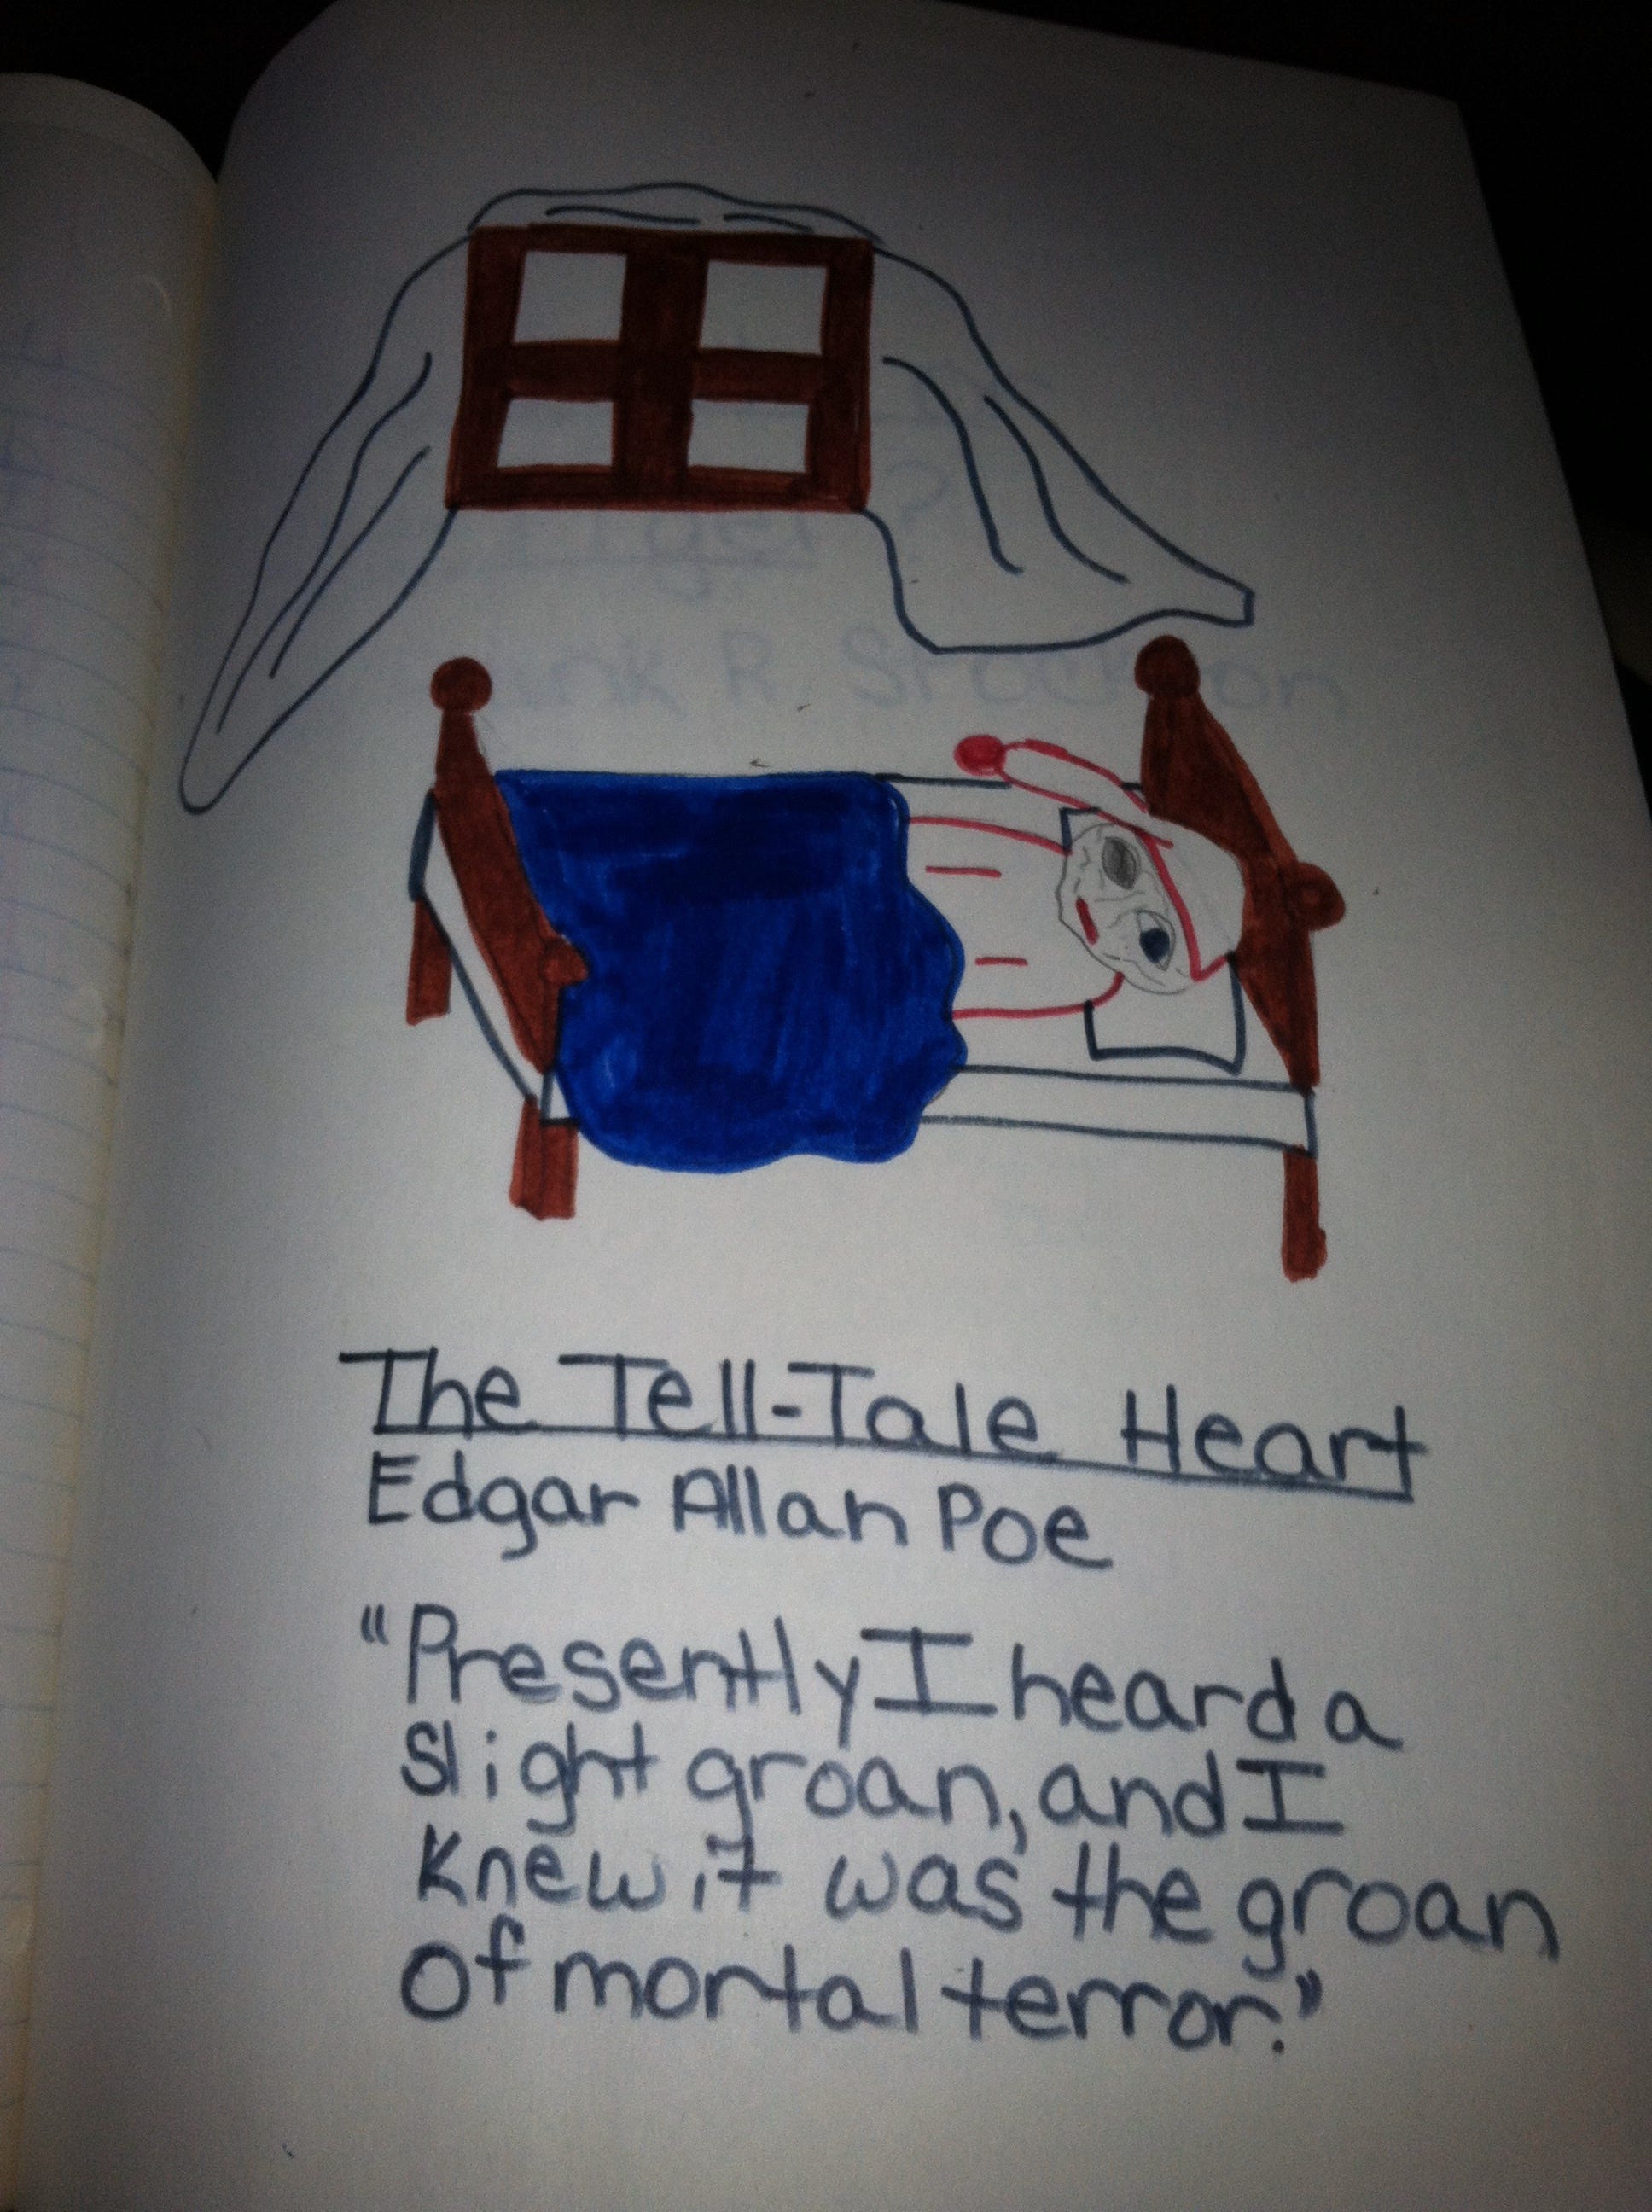 The Tell-Tale Heart
Edgar Allan Poe
"Presently I heard a
slight groan, and I
knew it was the groan
of mortal terror."